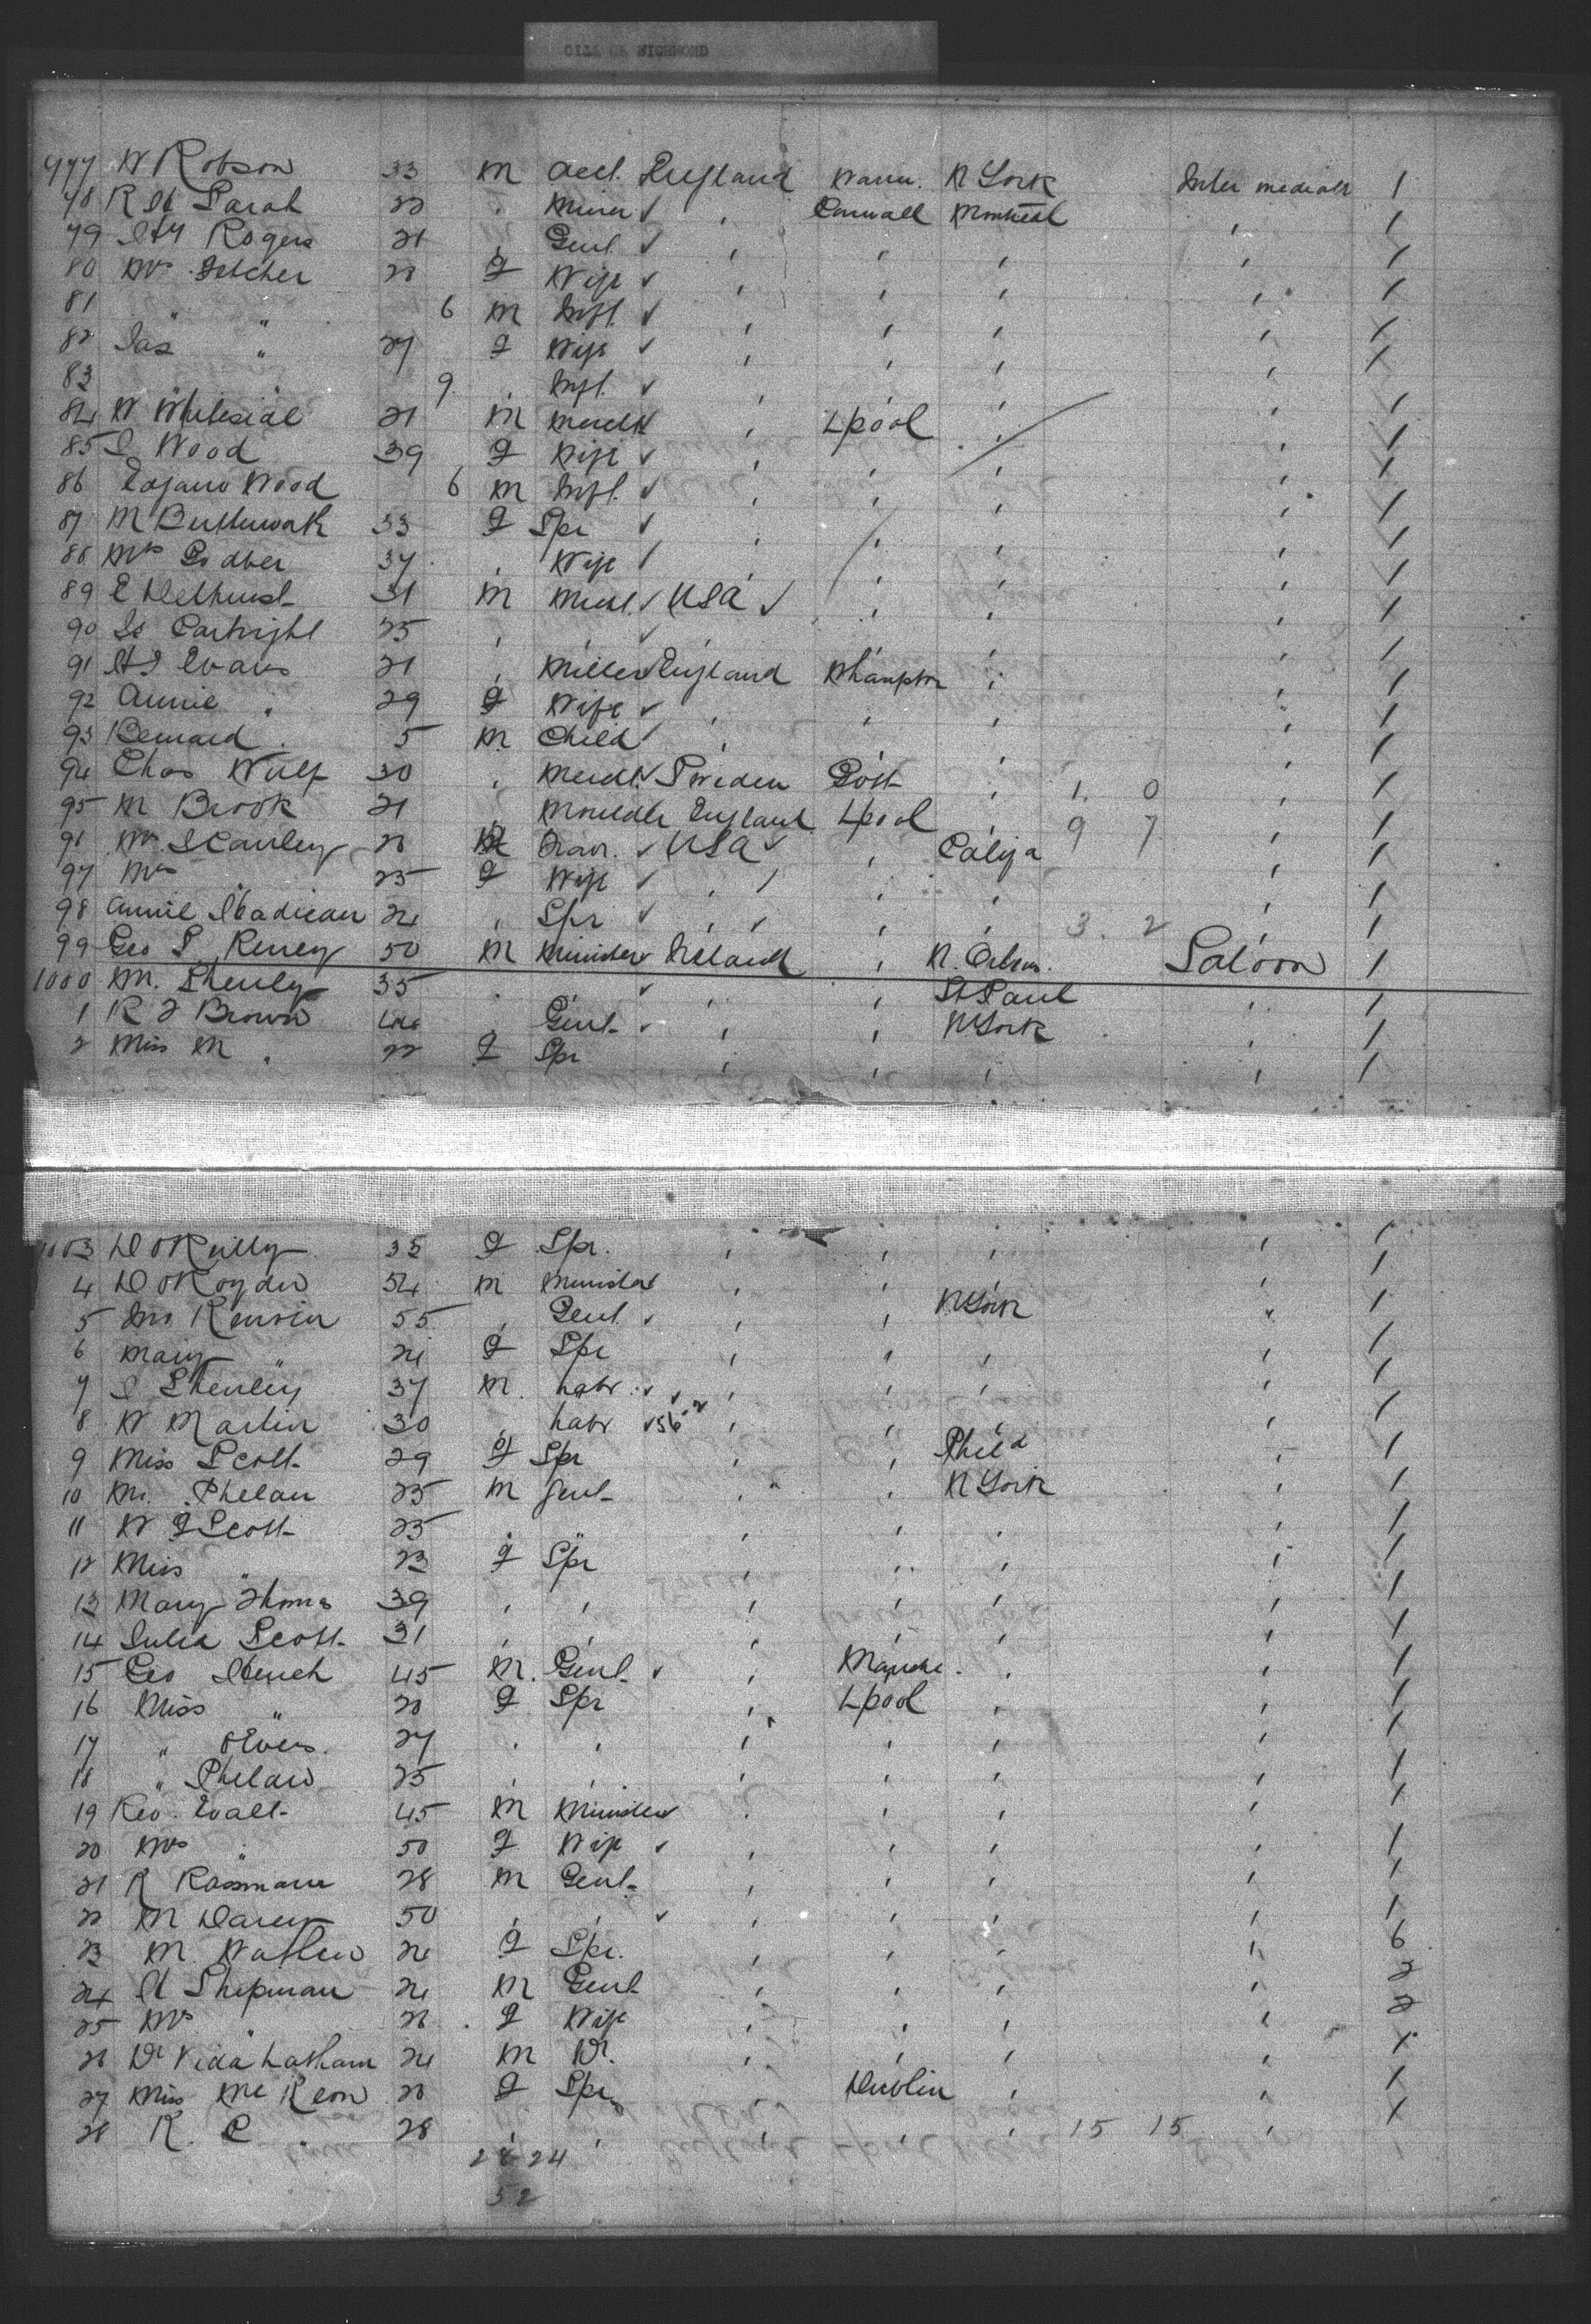 CITY OF RICHMOND
977 W Robson 33 M Accl. England Warw. N York Inter mediate 1
78 R H Sarah 22 " Miner " Cornwall Montreal " 1
79 Rogers 21 " Genl " " " " 1
80 Mrs Fletcher 28 F Wife " " " " 1
81 " " 6 M Inft. " " " " 1
82 Jas " 27 F Wife " " " " 1
83 9 " Inft. " " " " 1
84 W 21 M Mercht " Lpool " " 1
85 J Wood 39 F Wife " " " " 1
86 Wood 6 M Inft. " " " " 1
87 M 33 F Spr " " " " 1
88 Mrs 37 " Wife " " " " 1
89 E 31 M Mercht. USA " " " 1
90 Cartright 25 " " " " " " 1
91 H J Evans 21 " Miller England Whampton " " 1
92 Annie " 29 F Wife " " " " 1
93 Bernard " 5 M Child " " " " 1
94 Chas Wulf 30 " Mercht. Sweden Gott " 1. 0 " 1
95 M Brook 21 " England Lpool " 9 7 " 1
96 Mr Stanley 28 M USA " Califa " 1
97 Mrs " 25 F Wife " " " " 1
98 Annie 24 " Spr " " " 3. 2 " 1
99 Geo S. Kenny 50 M Minister Ireland " N. Orleans. Saloon 1
1000 M. Shenly 35 " " " " St Paul " 1
1 R J Brown 44 " Genl " " N York " 1
2 Miss M " 22 F Spr " " " " 1
1003 D O Reilly 35 F Spr. " " " " 1
4 D O 54 M Minister " " " " 1
5 Jno 55 " Genl " " N York " 1
6 Mary " 24 F Spr " " " " 1
7 J Shenley 37 M. Labr " " " " 1
8 W Martin 30 " Labr 56 " " " " 1
9 Miss Scott 29 F Spr " " Phila " 1
10 Mr. Phelan 25 M Genl " " N York " 1
11 W J Scott 25 " " " " " " 1
12 Miss " 23 F Spr " " " " 1
13 Mary Thoms 39 " " " " " " 1
14 Julia Scott 31 " " " " " " 1
15 Geo 45 M. Genl " Manche. " " 1
16 Miss " 20 F Spr " Lpool " " 1
17 " 27 " " " " " " 1
18 " Phelan 25 " " " " " " 1
19 Rev. Evatt 45 M Minister " " " " 1
20 Mrs " 50 F Wife " " " " 1
21 R Rossmann 28 M Genl " " " " 1
22 M Darcy 50 " " " " " " 1
23 M. 24 F Spr. " " " " 6
24 H Shipman 24 M Genl " " " " 2
25 Mrs " 26 F Wife " " " " 2
26 Dr Vida Latham 24 M Dr. " " " " 1
27 Miss Mc Keon 20 F Spr " Dublin " " 1
28 R. C " 28 " " " " " 15 15 " 1
28 24
52